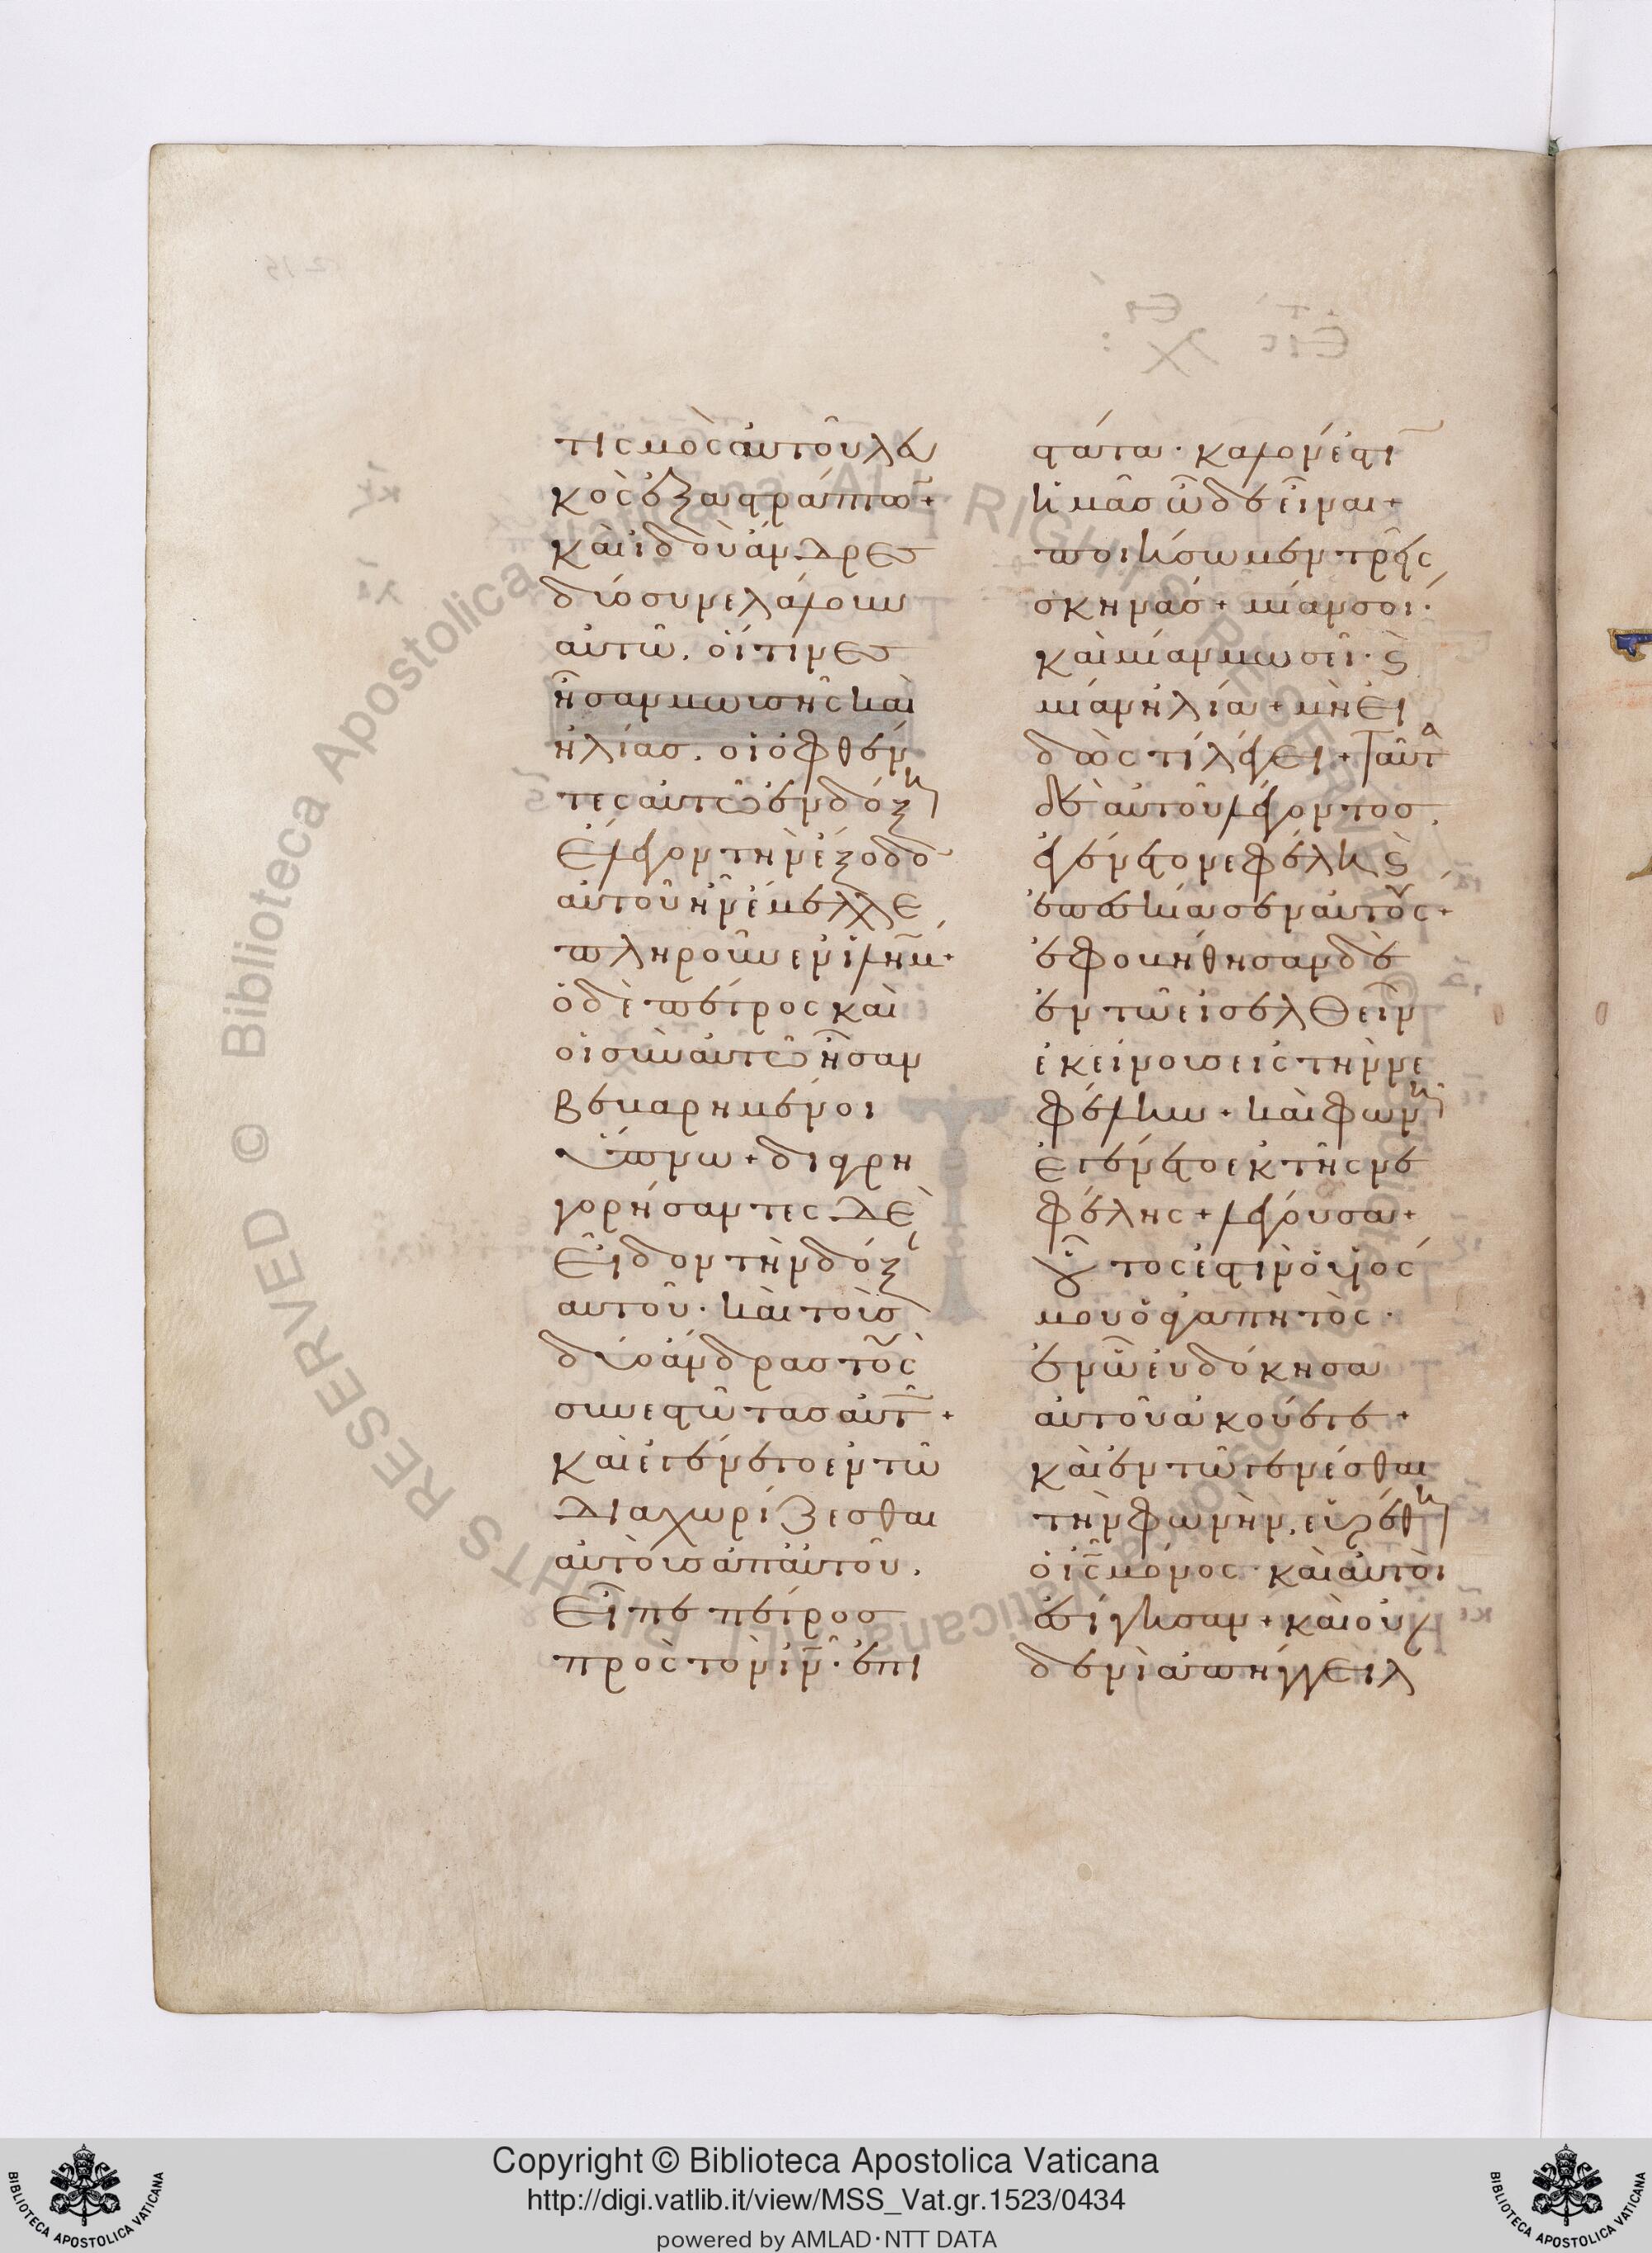 τισμὸς αὐτοῦ λευ
κὸς ἐξαστράπτων +
καὶ ἰδοὺ ἄνδρες
δύο συνελάλουν
αὐτῶ. οἵτινες
ἦσαν μωϋσῆς καὶ
ἠλίας. οἳ ὀφθέν
τες αὐτῶ ἐν δόξη
ἔλεγον τὴν ἔξοδο
αὐτοῦ ἣν ἔμελλε
πληροῦν ἐν ἱλημ +
ὁ δὲ πέτρος καὶ
οἱ σὺν αὐτῶ ἦσαν
βεβαρημένοι
ὕπνω + διαγρη
γορήσαντες δὲ
εἶδον τὴν δόξ
αὐτοῦ. καὶ τοὺς
δύο ἄνδρας τοὺς
συνεστῶτας αὐτ +
καὶ ἐγένετο ἐν τῶ
διαχωρίζεσθαι
αὐτοὺς ἀπ αὐτοῦ.
εἶπε πέτρος
πρὸς τὸν ἰν. ἐπι
στάτα. καλόν ἐστι
ἡμᾶς ὧδε εἶναι +
ποιήσωμεν τρεῖς
σκηνάς + μίαν σοί.
καὶ μίαν μωσεῖ. ϛ
μίαν ἠλία + μὴ εἰ
δὼς τί λέγει + ταῦτα
δὲ αὐτοῦ λέγοντος.
ἐγένετο νεφέλη ϛ
ἐπεσκίασεν αὐτούς +
ἐφοβήθησαν δὲ
ἐν τῶ εἰσελθεῖν
ἐκείνους εἰς τὴν νε
φέλην + καὶ φωνὴ
ἐγένετο ἐκ τῆς νε
φέλης + λέγουσα +
οὗτός ἐστιν ὁ υἱός
μου ὁ ἀγαπητὸς.
ἐν ὧ εὐδόκησα
αὐτοῦ ἀκούετε +
καὶ ἐν τῶ γενέσθαι
τὴν φωνὴν. εὑρέθη
ὁ ις μόνος. καὶ αὐτοὶ
ἐσίγησαν + καὶ οὐ
δενὶ ἀπήγγειλ
Copyright © Biblioteca Apostolica Vaticana
http://digi.vatlib.it/view/MSS_Vat.gr.1523/0434
powered by AMLAD·NTT DATA
BIBLIOTECA APOSTOLICA VATICANA
BIBLIOTECA APOSTOLICA VATICANA